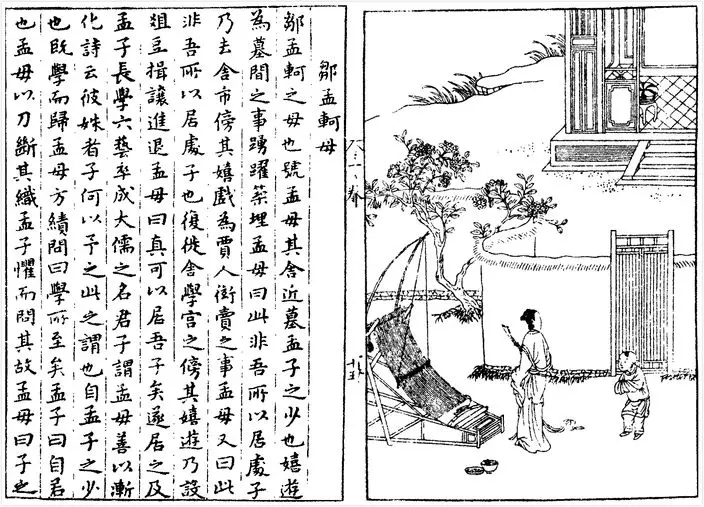 鄒孟軻母
鄒孟軻之母也號孟母其舍近墓孟子之少也嬉遊
為墓間之事踴躍築埋孟母曰此非吾所以居處子
乃去舍市傍其嬉戲為賈人衒賣之事孟母又曰此
非吾所以居處子也復徙舍學宮之傍其嬉遊乃設
俎豆揖讓進退孟母曰真可以居吾子矣遂居之及
孟子長學六藝卒成大儒之名君子謂孟母善以漸
化詩云彼姝者子何以予之此之謂也自孟子之少
也既學而歸孟母方績問曰學所至矣孟子曰自若
也孟母以刀斷其織孟子懼而問其故孟母曰子之